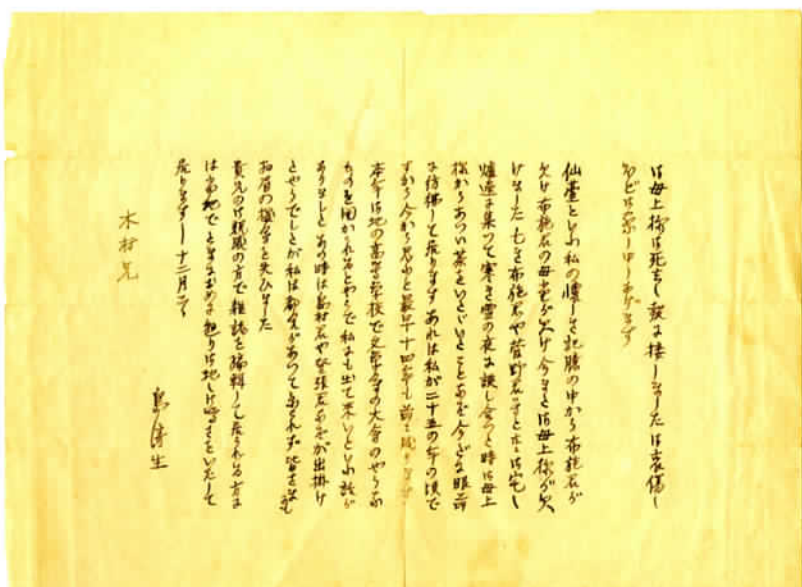 御母上様御死去の報に接しました御哀傷
のほどお察し申しあげます
仙台といふ私の懐しき記憶の中から布施君が
欠け布施君の母堂が欠け今また御母上様が欠
けました もと布施君や菅野君などと御宅し
炉辺に集つて寒き雪の夜に談し合つた時御母上
様からあつい茶をいただいたことなど今だに眼前
に彷彿して居ります あれは私が二十五の年の頃で
すから今から思ふと最早十四年も前に
本年は地の高等学校で文学会の大会のやうな
ものを開かれるとやらで私にも出て来いといふ話が
ありました あの時は島村君や君などが出掛け
たやうでしたが私は都合があつて参られず皆さまに
お眉の機会を失ひました
貴兄の御親戚の方で雑誌を編輯して居られる方に
は当地でときどきお目に懸り御地の噂などいたして
居ります 十二月二日
島崎生
木村兄